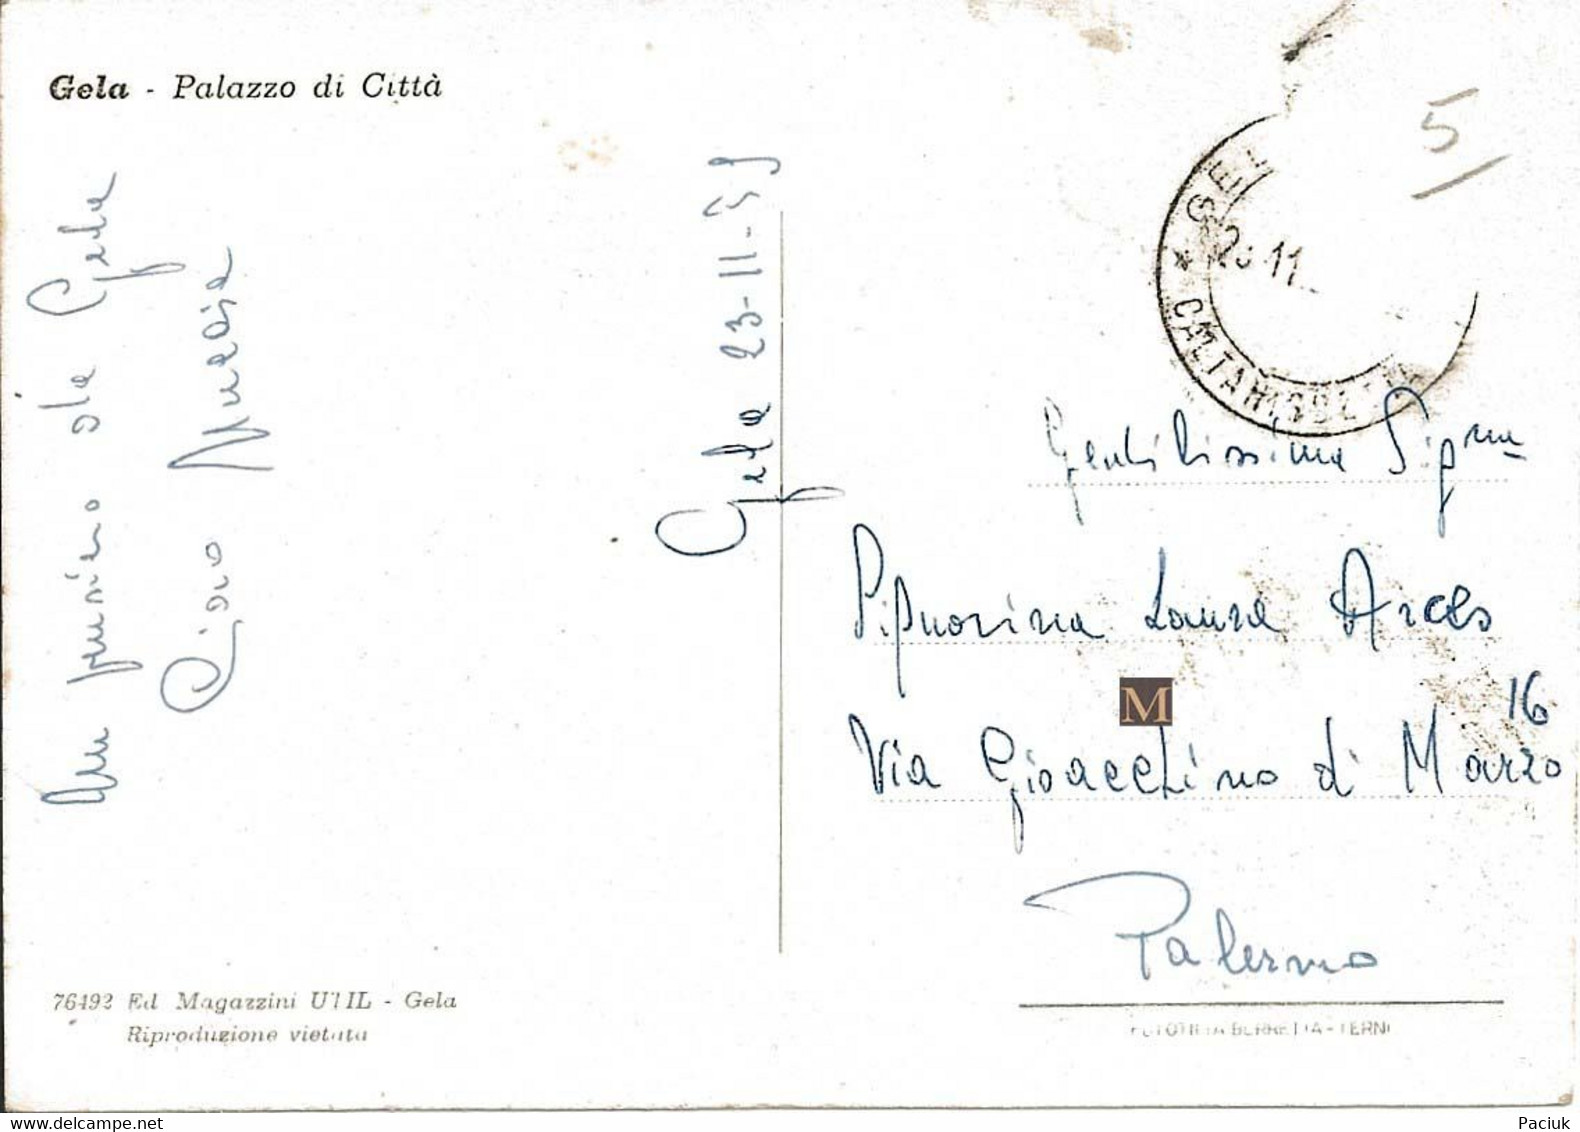 Gela - Palazzo di Città
Un pensiero da Gela
Gela 23-11-59
GEL
23.11
CALTANISSETTA
5
Gentilissima Sig.na
Signorina Laura Arces
Via Gioacchino di Marzo 16
Palermo
76492 Ed Magazzini UTIL - Gela
Riproduzione vietata
FOTOTIPIA BERRETTA - TERNI
M
Paciuk